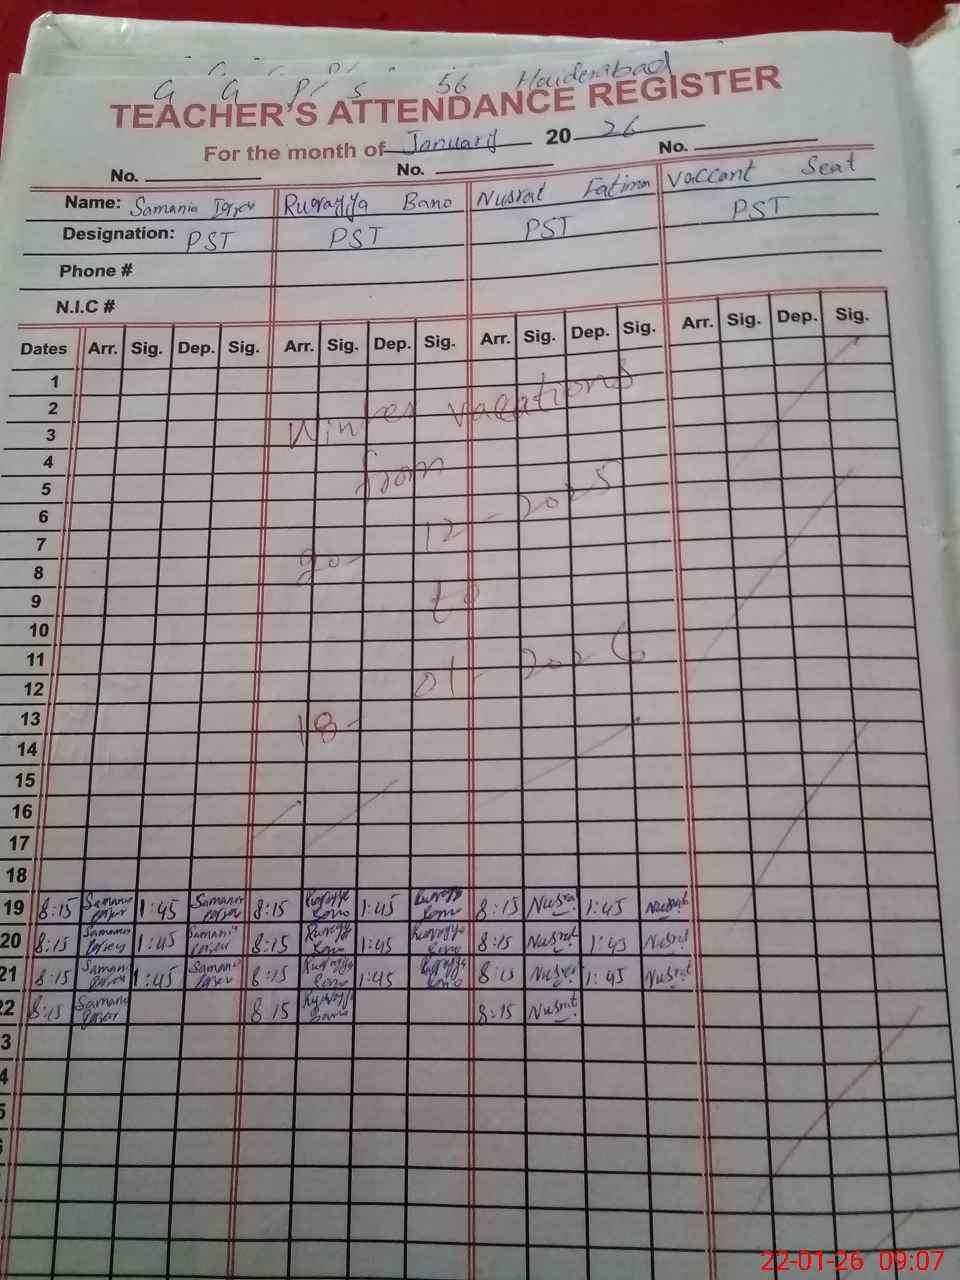 G G P/S 56 Haiderabad
TEACHER'S ATTENDANCE REGISTER
For the month of January 2026
No. No. No.
Name: Samania Ruqayya Bano Nusrat Fatima Vaccant Seat
Designation: PST PST PST PST
Phone #
N.I.C #
Dates Arr. Sig. Dep. Sig. Arr. Sig. Dep. Sig. Arr. Sig. Dep. Sig. Arr. Sig. Dep. Sig.
1
2
3
4
5
6
7
8
9
10
11
12
13
14
15
16
17
18
Winter vacations
from
20-12-2025
to
18-01-2026
19 8:15 Samania 1:45 Samania 8:15 Ruqayya Bano 1:45 Ruqayya Bano 8:15 Nusrat 1:45 Nusrat
20 8:15 Samania 1:45 Samania 8:15 Ruqayya Bano 1:45 Ruqayya Bano 8:15 Nusrat 1:45 Nusrat
21 8:15 Samania 1:45 Samania 8:15 Ruqayya Bano 1:45 Ruqayya Bano 8:15 Nusrat 1:45 Nusrat
22 8:15 Samania 8:15 Ruqayya Bano 8:15 Nusrat
3
4
5
6
22-01-26 09:07